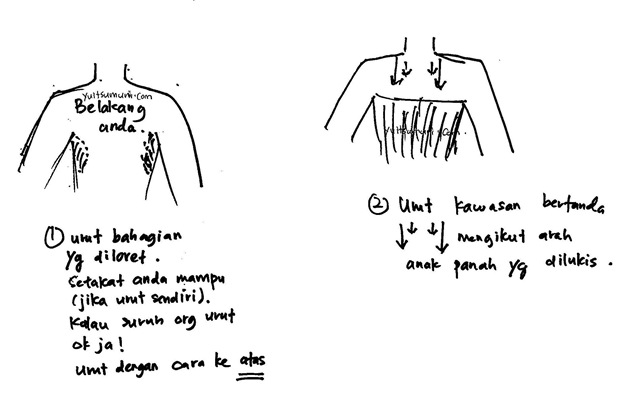 yuitsumum.com
Belakang
anda.
① urut bahagian
yg diloret.
Setakat anda mampu
(jika urut sendiri).
Kalau suruh org urut
ok ja!
Urut dengan cara ke atas
② Urut kawasan bertanda
mengikut arah
anak panah yg dilukis.